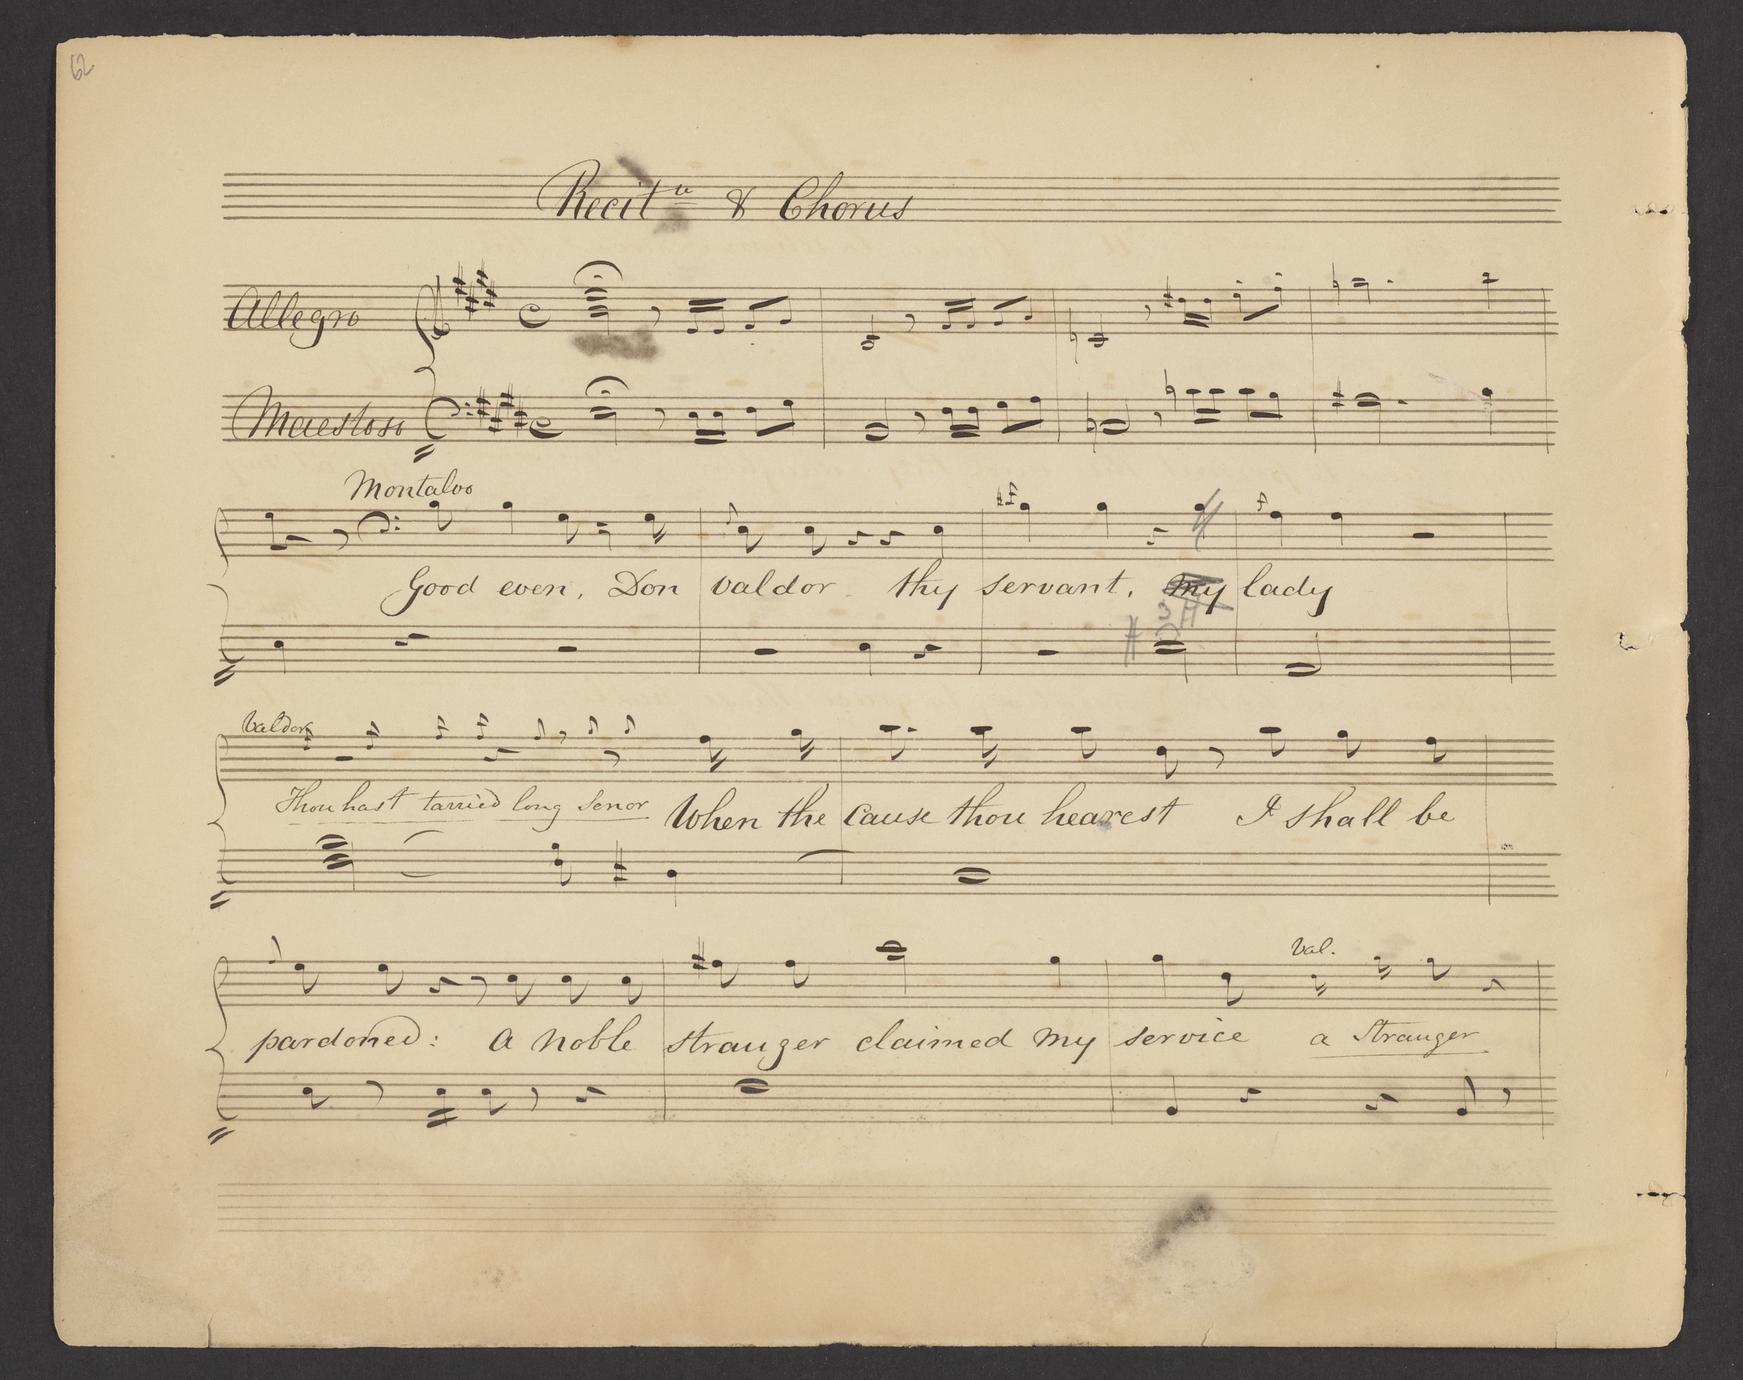 62
Recit.ve & Chorus
Allegro
Maestoso
Montalvo
Good even, Don valdor thy servant, my lady
Valdor
Thou hast tarried long Senor When the cause thou hearest I shall be
Val.
pardoned: a noble stranger claimed my service a Stranger